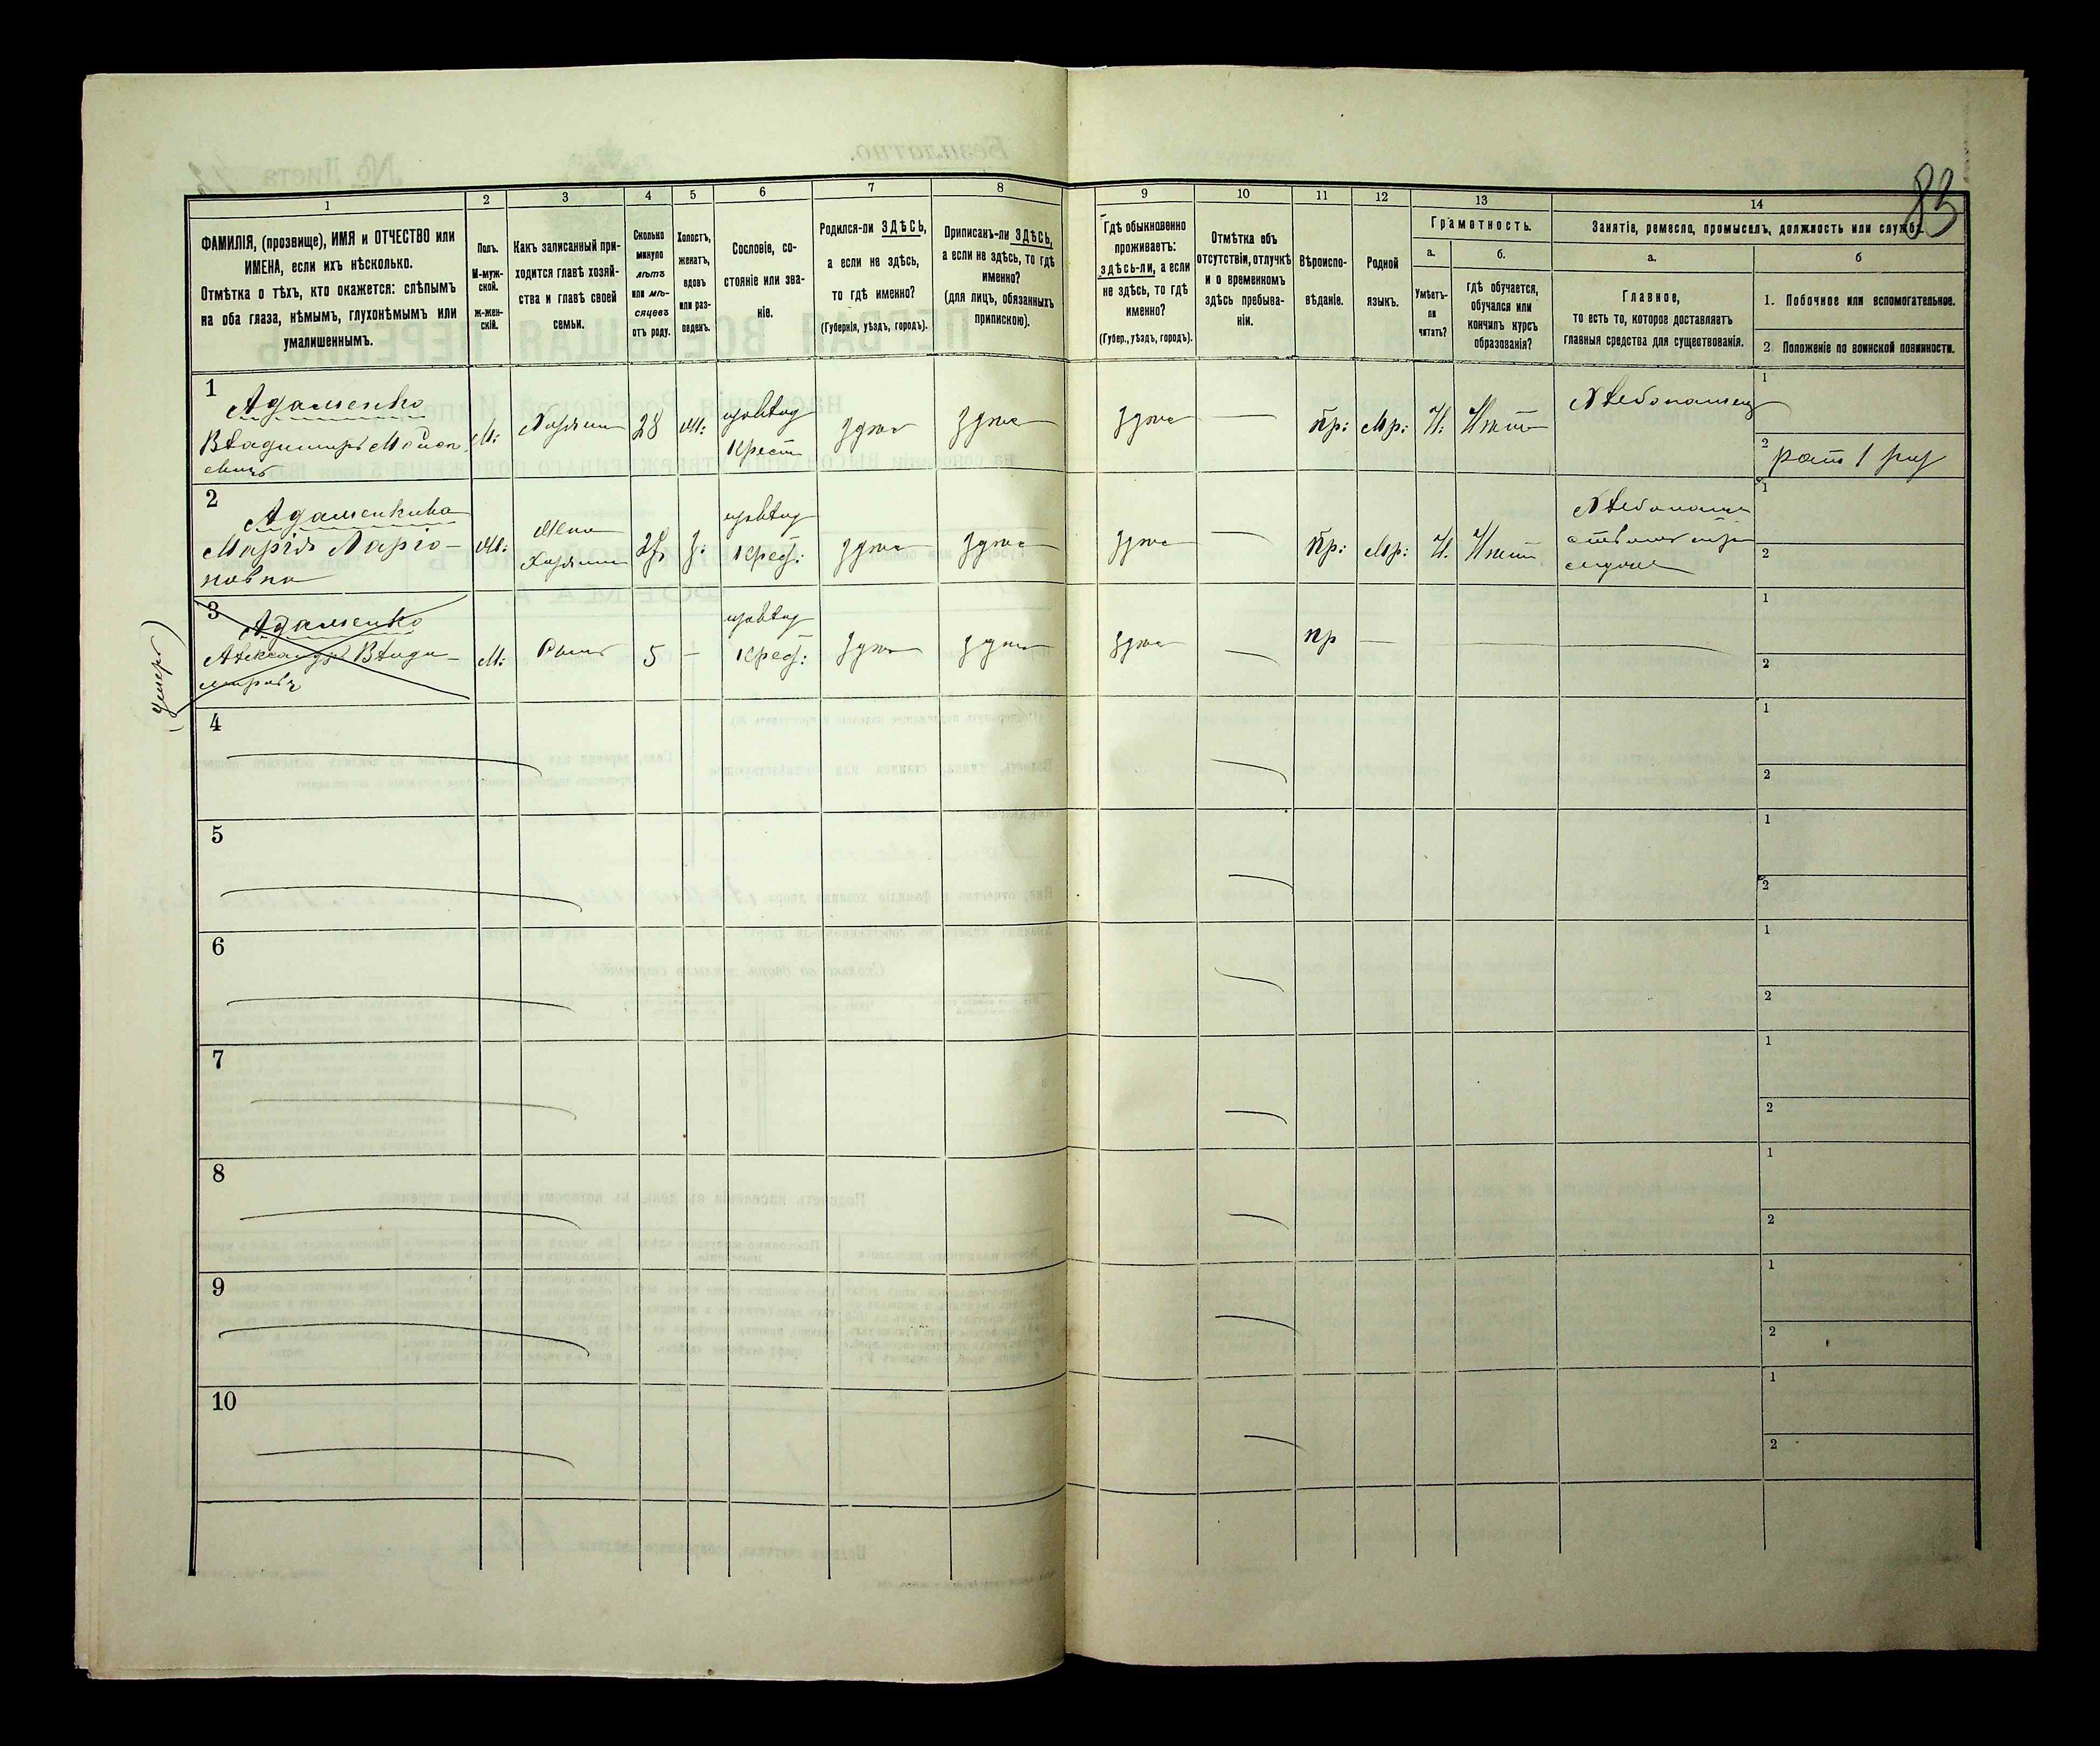 83
1
2
3
4
5
6
7
8
9
10
11
12
13
14
ФАМИЛІЯ, (прозвище), ИМЯ и ОТЧЕСТВО или
ИМЕНА, если ихъ нѣсколько.
Отмѣтка о тѣхъ, кто окажется: слѣпымъ
на оба глаза, нѣмымъ, глухонѣмымъ или
умалишеннымъ.
Полъ.
М-муж-
ской.
ж-жен-
скій.
Какъ записанный при-
ходится главѣ хозяй-
ства и главѣ своей
семьи.
Сколько
минуло
лѣтъ
или мѣ-
сяцевъ
отъ роду.
Холостъ,
женатъ,
вдовъ
или раз-
веденъ.
Сословіе, со-
стояніе или зва-
ніе.
Родился-ли ЗДѢСЬ,
а если не здѣсь,
то гдѣ именно?
(Губернія, уѣздъ, городъ).
Приписанъ-ли ЗДѢСЬ,
а если не здѣсь, то гдѣ
именно?
(для лицъ, обязанныхъ
припискою).
Гдѣ обыкновенно
проживаетъ:
здѣсь-ли, а если
не здѣсь, то гдѣ
именно?
(Губер., уѣздъ, городъ).
Отмѣтка объ
отсутствіи, отлучкѣ
и о временномъ
здѣсь пребыва-
ніи.
Вѣроиспо-
вѣданіе.
Родной
языкъ.
Грамотность.
а.
Умѣетъ-
ли
читать?
б.
гдѣ обучается,
обучался или
кончилъ курсъ
образованія?
Занятіе, ремесло, промыселъ, должность или служба.
а.
Главное,
то есть то, которое доставляетъ
главныя средства для существованія.
б
1. Побочное или вспомогательное.
2. Положеніе по воинской повинности.
1
Адаменко
Владимиръ Моисе
евичъ
М:
Хозяинъ
28
Крест
здѣсь
здѣсь
здѣсь
пр:
Мр:
Н.
Нѣтъ
Хлебопашец
1
2
рат 1 раз
2
Адаменкова
Марія Ларіо-
новна
Жена
Хозяина
з:
Крест:
здѣсь
здѣсь
здѣсь
пр:
Мр:
Н.
Нѣтъ
1
2
(умеръ)
3
Адаменко
Александръ Влади-
міровъ
М:
Сынъ
5
Крест:
здѣсь
здѣсь
здѣсь
пр
1
2
4
1
2
5
1
2
6
1
2
7
1
2
8
1
2
9
1
2
10
1
2